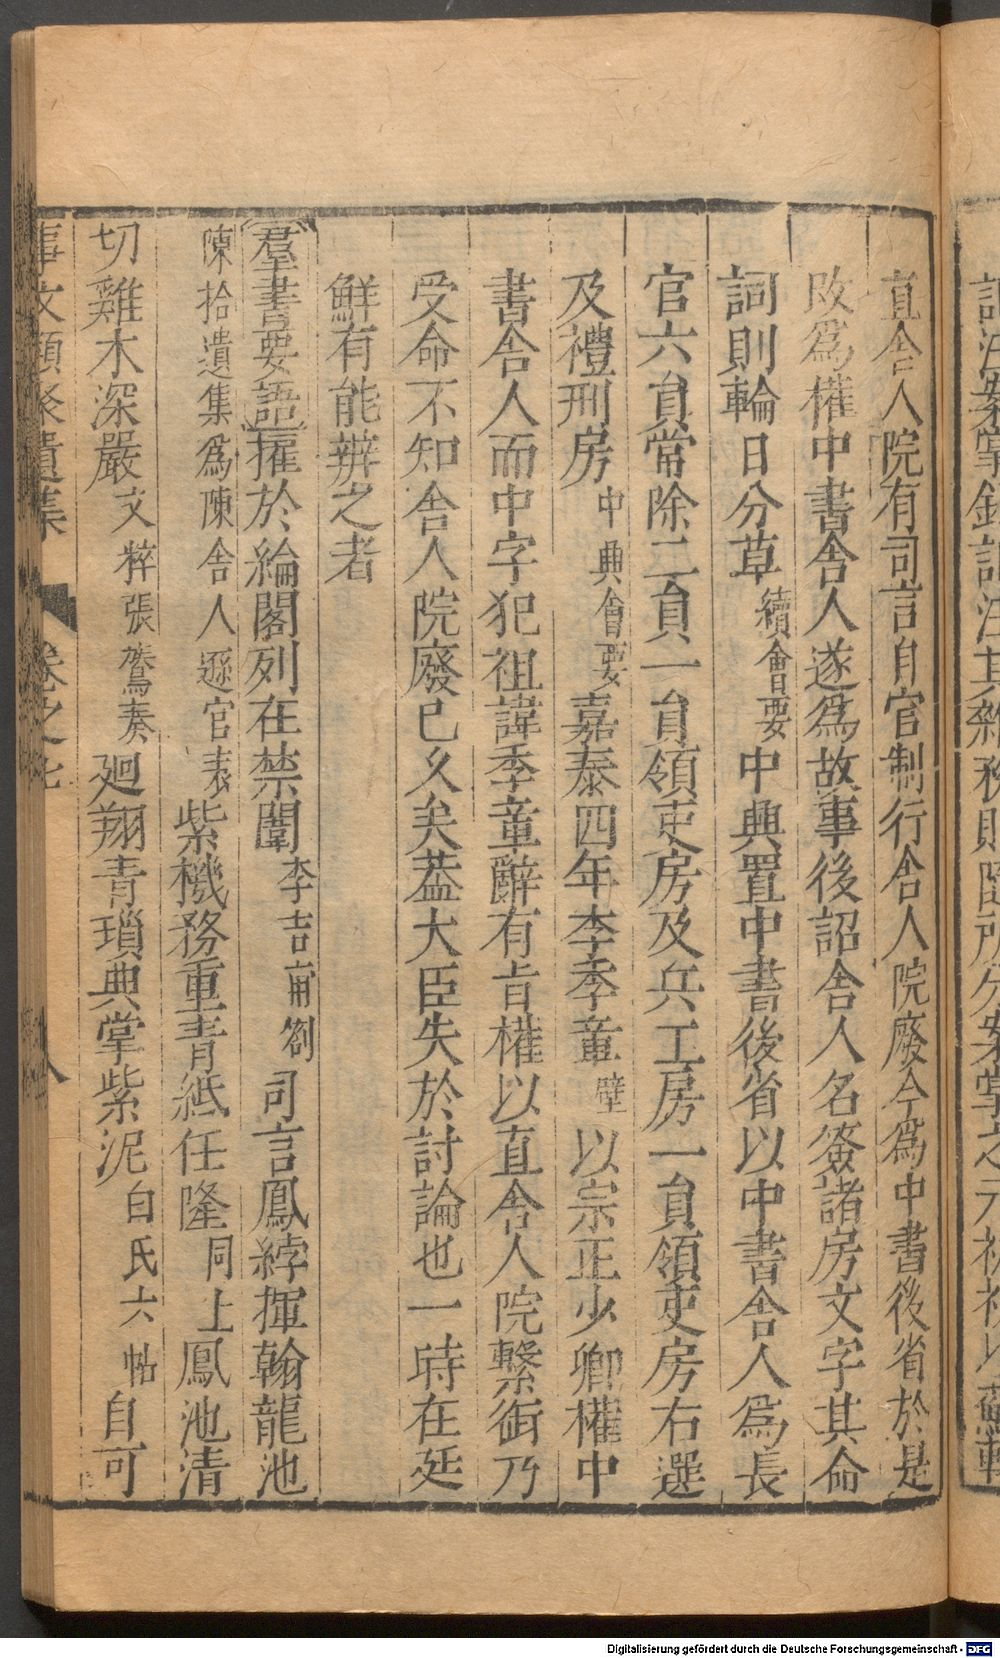 直舍人院有司言自官制行舍人院廢今爲中書後省於是
改爲權中書舍人遂爲故事後詔舍人名簽諸房文字其命
詞則輪日分草續會要中興置中書後省以中書舍人爲長
官六員常除二員一員領吏房及兵工房一員領吏房右選
及禮刑房中興會要嘉泰四年李季童壁以宗正少卿權中
書舍人而中字犯祖諱季童辭有旨權以直舍人院繫銜乃
受命不知舍人院廢已久矣葢大臣失於討論也一時在廷
鮮有能辨之者
羣書要語擢於綸閣列在禁闈李吉甫劄司言鳳綍揮翰龍池
陳拾遺集爲陳舍人遜官表紫機務重青紙任隆同上鳳池清
切雞木深嚴文粹張鷟奏廻翔青瑣典掌紫泥白氏六帖自可
事文類聚遺集 卷之七 八
Digitalisierung gefördert durch die Deutsche Forschungsgemeinschaft - DFG